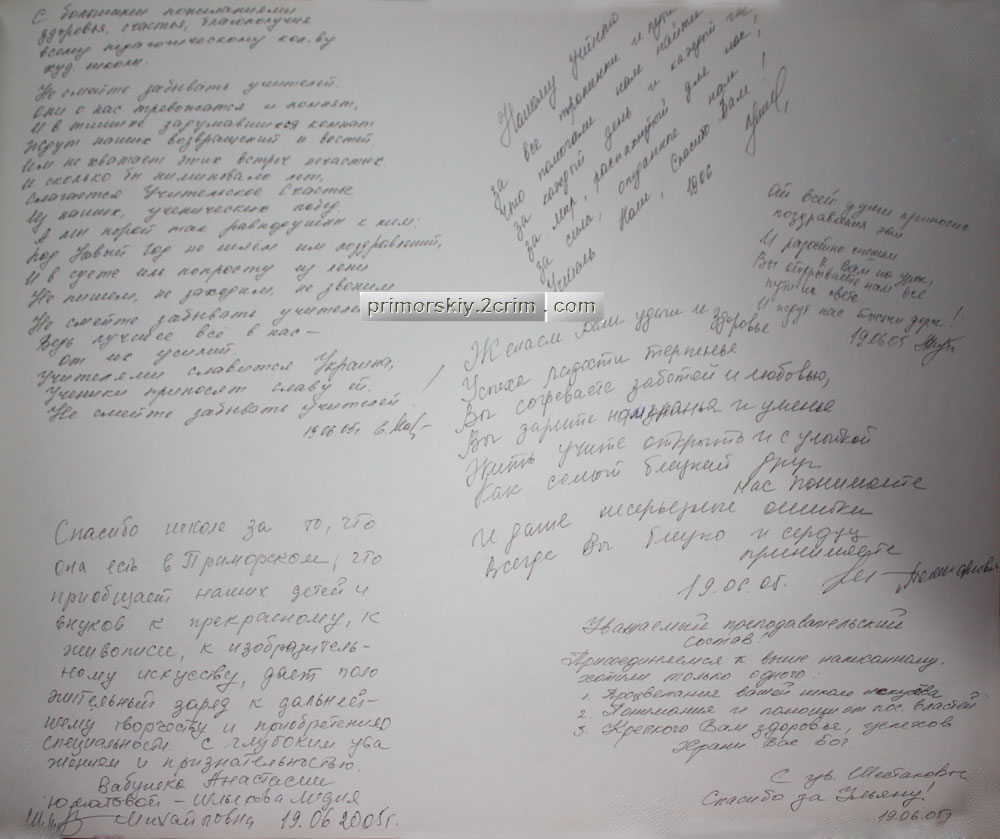 С большими пожеланиями
здоровья, счастья, благополучия
всему педагогическому кол-ву
худ. школы.
Не смейте забывать учителей.
Они о нас тревожатся и помнят,
И в тишине задумавшихся комнат
Ждут наших возвращений и вестей.
Им не хватает этих встреч нечастых.
И сколько бы ни миновало лет,
Слагается Учительское Счастье
Из наших, ученических побед.
А мы порой так равнодушны к ним:
Под Новый Год не шлём им поздравлений,
И в суете или попросту из лени
Не пишем, не заходим, не звоним
Не смейте забывать учителей
Ведь лучшее всё в нас –
от их усилий.
Учителями славится Украина,
Ученики приносят славу ей.
Не смейте забывать учителей!
19.06.05г.
Нашему учителю
за все тропинки и пути
Что помогали нам найти
За каждый день и каждый час,
За мир, распахнутый для нас,
За силы, отданные нам!
Учитель Наш, Спасибо Вам
1906
От всей души приносим
поздравления
И радостно спешим
к Вам на Урок,
Вы открываете нам все
пути на свете
И ждут нас тысячи дорог!
19.06.05
primorskiy.2crim.com
Желаем Вам удачи и здоровье
Успеха радости терпенье
Вы согреваете заботой и любовью,
Вы дарите нам знанья и уменье
Жить учите открыть и с улыбкой
Как самый близкий друг
нас понимаете
И даже несерьезные ошибки
Всегда Вы близко к сердцу
принимаете
19.06.05г.
Спасибо школе за то, что
она есть в Приморском, что
приобщает наших детей и
внуков к прекрасному, к
живописи, к изобразитель-
ному искусству, дает поло
жительный заряд к дальней-
шему творчеству и приобретению
специальности. С глубоким ува
жением и признательностью.
Бабушка Анастасии
Михайловна 19.06.2005г.
Уважаемый преподавательский
состав!
Присоединяемся к выше написанному,
хотели только одного:
1. Процветания вашей школе искусства
2. Понимания и помощи от пос. властей
3. Крепкого Вам здоровье, успехов
Храни Вас Бог.
С ув. Шестаковы
Спасибо за Ульяну!
19.06.05г